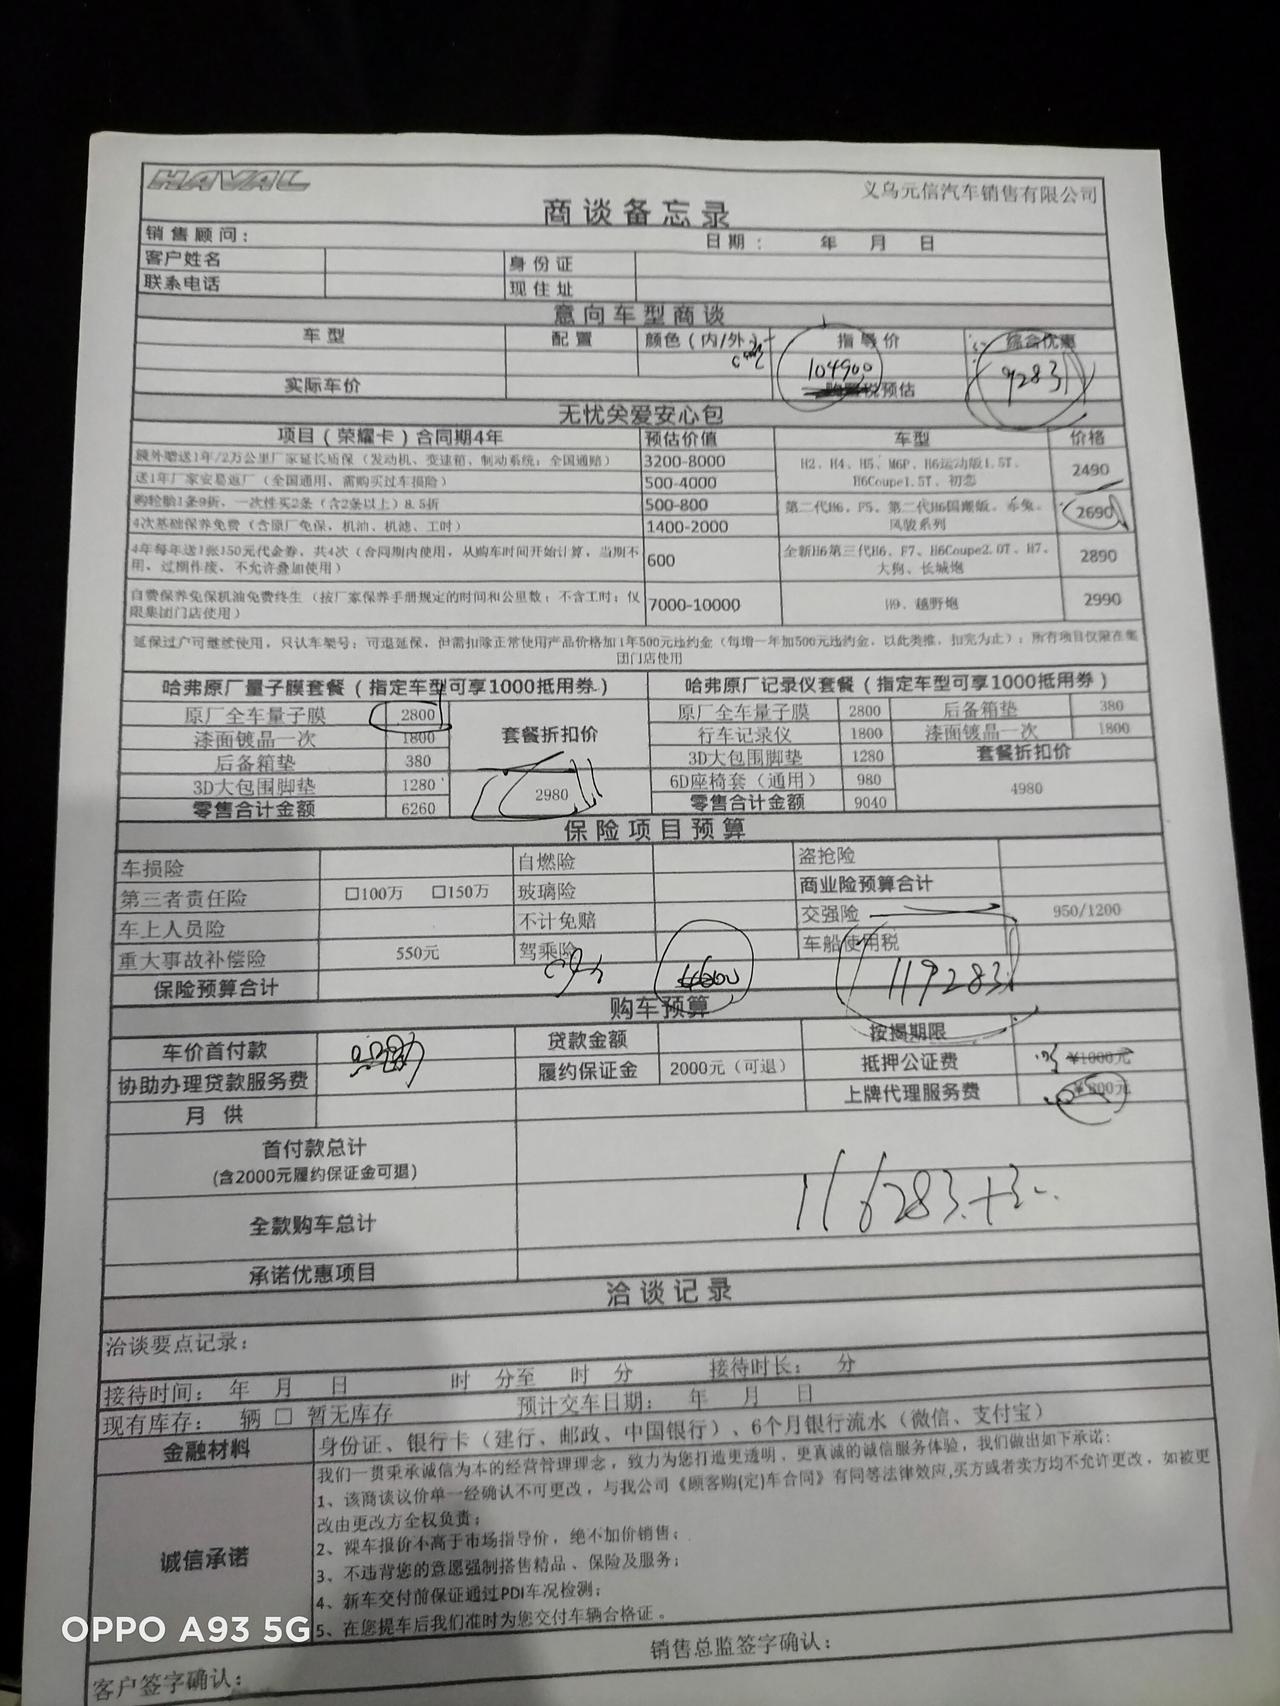 HAVAL
义乌元信汽车销售有限公司
商谈备忘录
销售顾问： 日期： 年 月 日
客户姓名 身份证
联系电话 现住址
意向车型商谈
车型 配置 颜色（内/外） 指导价 综合优惠
104900 9283
实际车价 税预估
无忧关爱安心包
项目（荣耀卡）合同期4年 预估价值 车型 价格
额外赠送1年/2万公里厂家延长质保（发动机、变速箱、制动系统；全国通赔） 3200-8000 H2、H4、H5、M6P、H6运动版1.5T、H6Coupe1.5T、初恋 2490
送1年厂家安易返厂（全国通用，需购买过车损险） 500-4000
购轮胎1条9折、一次性买2条（含2条以上）8.5折 500-800 第二代H6、F5、第二代H6国潮版、赤兔、风骏系列 2690
4次基础保养免费（含原厂免保，机油、机滤、工时） 1400-2000
4年每年送1张150元代金券，共4次（合同期内使用，从购车时间开始计算，当期不用，过期作废，不允许叠加使用） 600 全新H6第三代H6、F7、H6Coupe2.0T、H7、大狗、长城炮 2890
自费保养免保机油免费终生（按厂家保养手册规定的时间和公里数；不含工时；仅限集团门店使用） 7000-10000 H9、越野炮 2990
延保过户可继续使用，只认车架号；可退延保，但需扣除正常使用产品价格加1年500元违约金（每增一年加500元违约金，以此类推，扣完为止）；所有项目仅限在集团门店使用
哈弗原厂量子膜套餐（指定车型可享1000抵用券） 哈弗原厂记录仪套餐（指定车型可享1000抵用券）
原厂全车量子膜 2800 套餐折扣价 原厂全车量子膜 2800 后备箱垫 380
漆面镀晶一次 1800 行车记录仪 1800 漆面镀晶一次 1800
后备箱垫 380 3D大包围脚垫 1280 套餐折扣价
3D大包围脚垫 1280 2980 6D座椅套（通用） 980 4980
零售合计金额 6260 零售合计金额 9040
保险项目预算
车损险 自燃险 盗抢险
第三者责任险 □100万 □150万 玻璃险 商业险预算合计
车上人员险 不计免赔 交强险 950/1200
重大事故补偿险 550元 驾乘险 车船使用税
保险预算合计 119283
购车预算
车价首付款 贷款金额 按揭期限
协助办理贷款服务费 履约保证金 2000元（可退） 抵押公证费 ¥1000元
月供 上牌代理服务费 ¥800元
首付款总计
(含2000元履约保证金可退)
116283+3
全款购车总计
承诺优惠项目
洽谈记录
洽谈要点记录：
接待时间： 年 月 日 时 分至 时 分 接待时长： 分
现有库存： 辆 □ 暂无库存 预计交车日期： 年 月 日
金融材料 身份证、银行卡（建行、邮政、中国银行）、6个月银行流水（微信、支付宝）
诚信承诺
我们一贯秉承诚信为本的经营管理理念，致力为您打造更透明，更真诚的诚信服务体验，我们做出如下承诺：
1、该商谈议价单一经确认不可更改，与我公司《顾客购(定)车合同》有同等法律效应,买方或者卖方均不允许更改，如被更
改由更改方全权负责；
2、裸车报价不高于市场指导价，绝不加价销售；
3、不违背您的意愿强制搭售精品、保险及服务；
4、新车交付前保证通过PDI车况检测；
5、在您提车后我们准时为您交付车辆合格证。
客户签字确认： 销售总监签字确认：
OPPO A93 5G